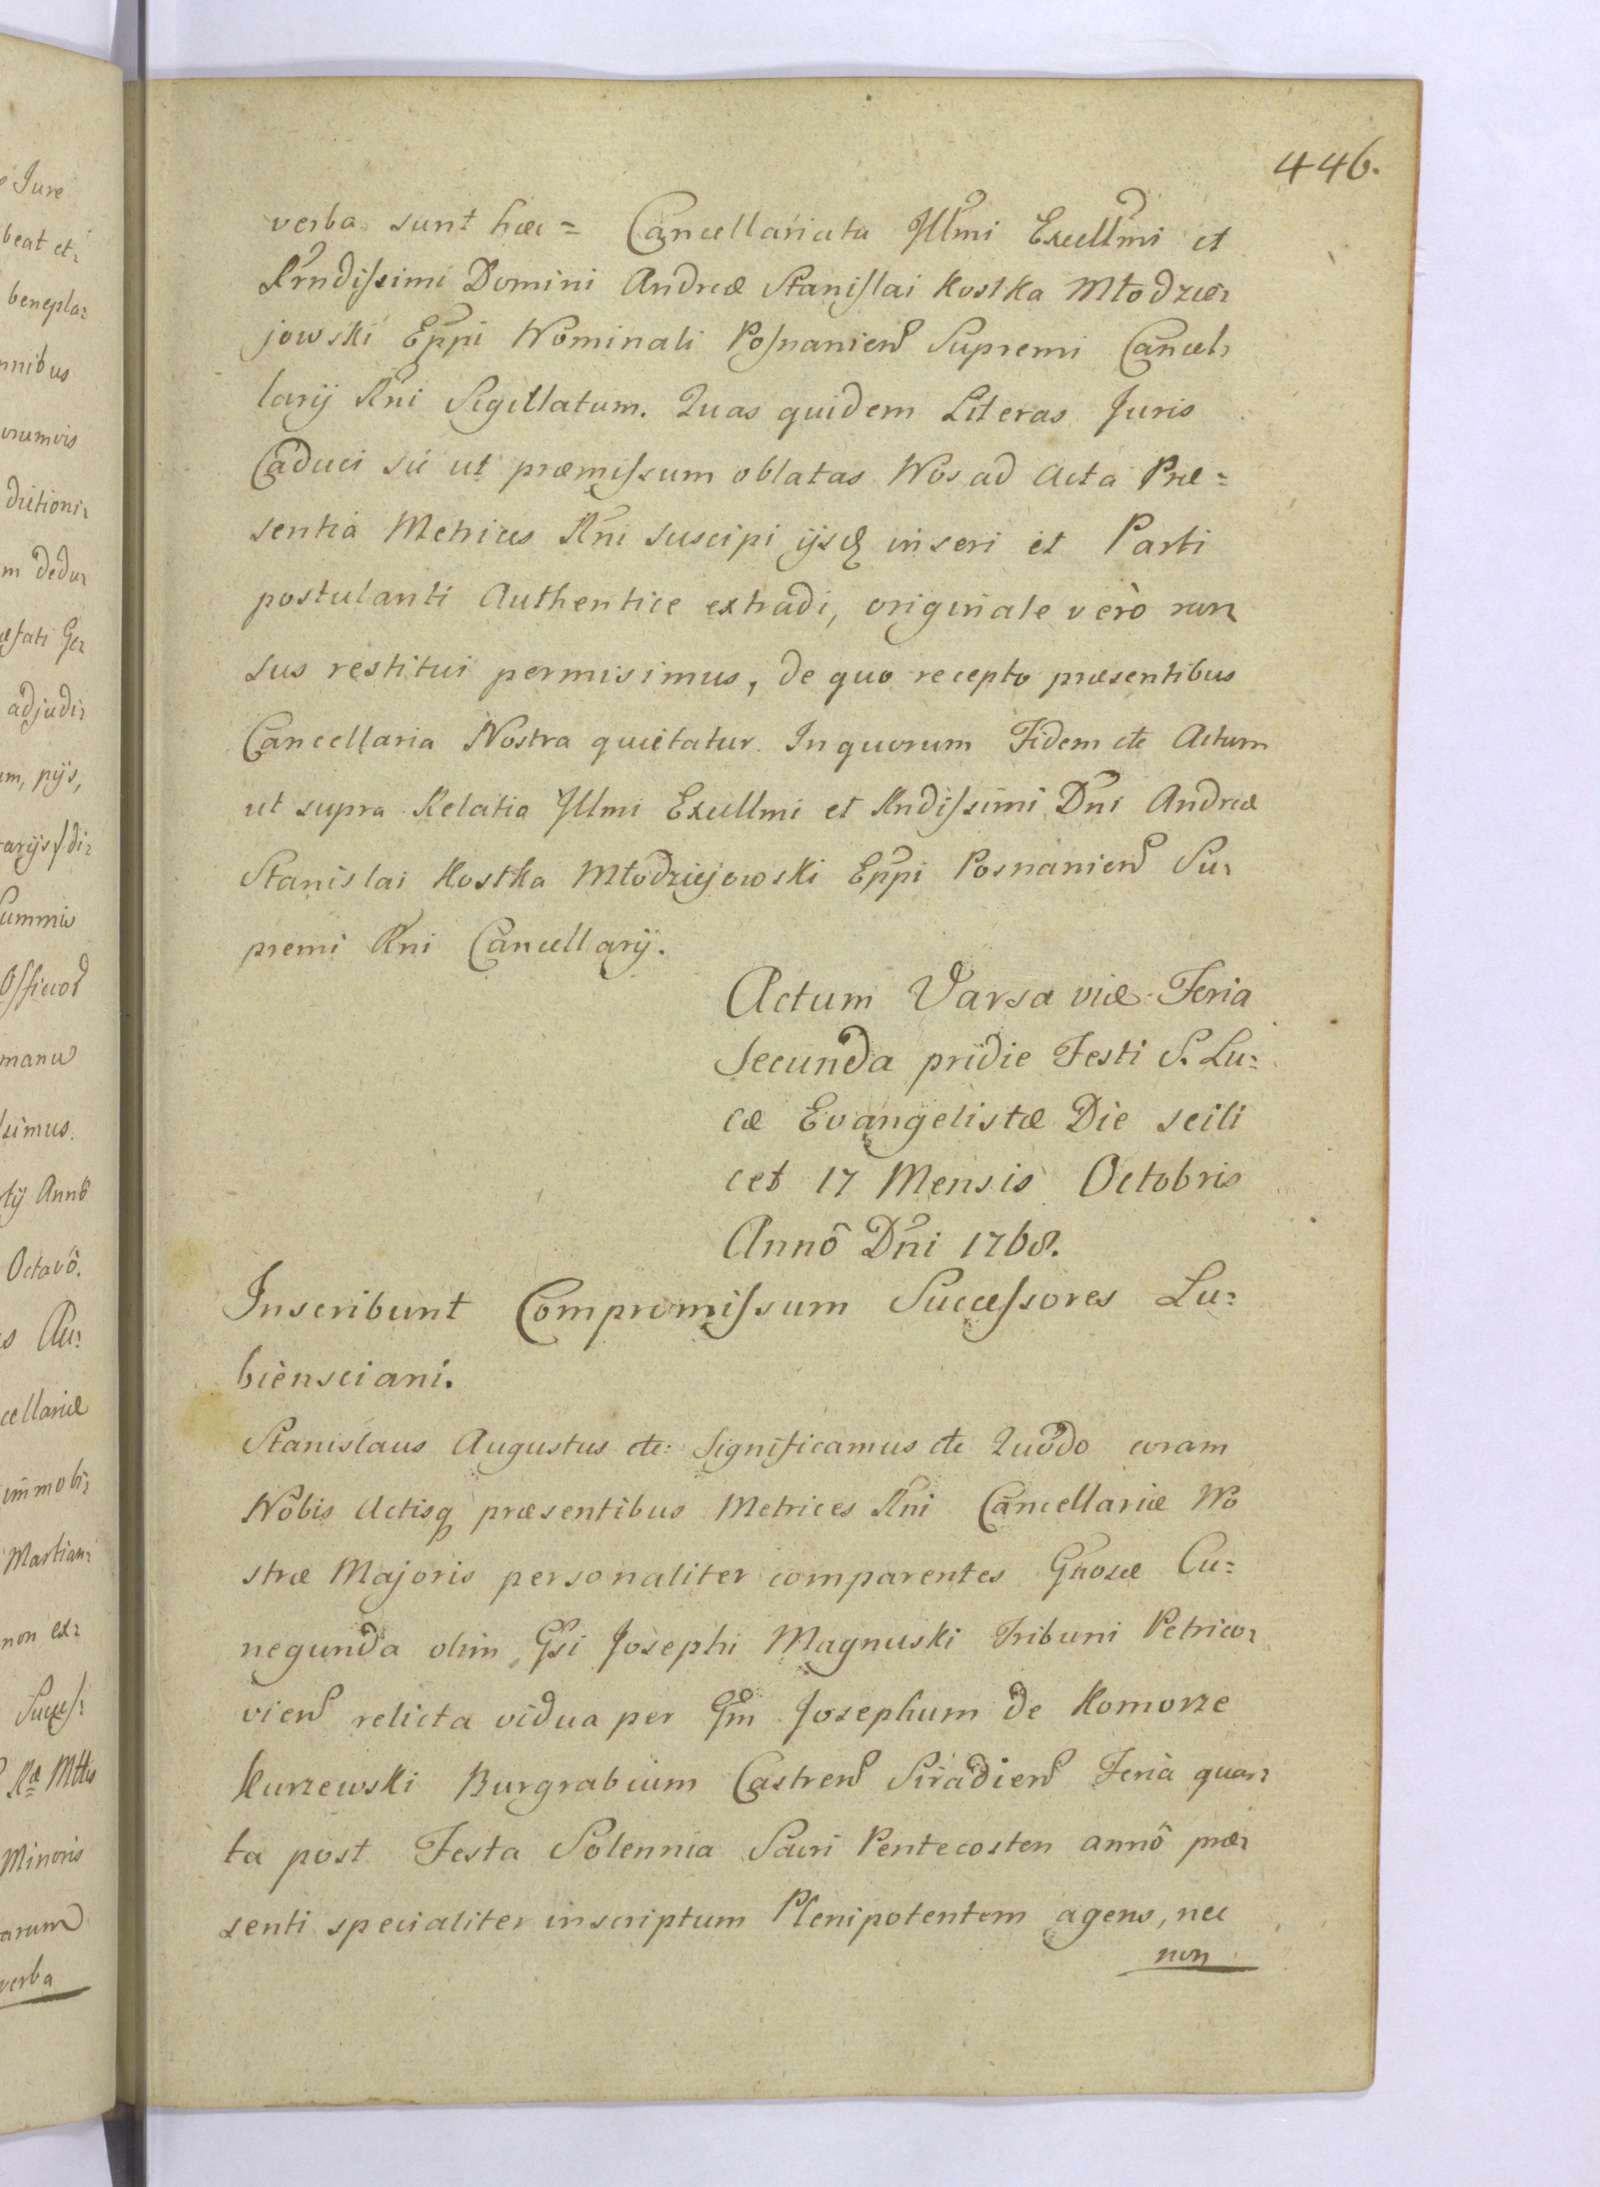 446.
verba sunt hæc = Cancellariatu Illmi Excellmi et
Rrndissimi Domini Andreæ Stanislai Kostka Młodzie-
jowski Eppi Nominati Posnanien Supremi Cancel-
larij Rni Sigillatum. Quas quidem Literas Juris
Caduci sic ut præmissum oblatas Nos ad Acta Præ=
sentia Metrices Rni suscipi ijsq inseri et Parti
postulanti Authentice extradi, originale verò rur-
sus restitui permisimus, de quo recepto præsentibus
Cancellaria Nostra quietatur. In quorum Fidem etc Actum
ut supra Relatio Illmi Excellmi et Rndissimi Dni Andreæ
Stanislai Kostka Młodziejowski Eppi Posnanien Su-
premi Rni Cancellarij.
Actum Varsaviæ Feria
Secunda pridie Festi S. Lu=
cæ Evangelistæ Die scili
cet 17 Mensis Octobris
Annô Dni 1768.
Inscribunt Compromissum Successores Lu=
biensciani.
Stanislaus Augustus etc: Significamus etc Quodo coram
Nobis Actisq præsentibus Metrices Rni Cancellariæ No
stræ Majoris personaliter comparentes Gnosæ Cu=
negunda olim Gsi Josephi Magnuski Tribuni Petrico-
vien relicta vidua per Gm Josephum de Komorze
Kurzewski Burgrabium Castren Siradien Feria quar-
ta post Festa Solennia Sacri Pentecosten annô præ-
senti specialiter inscriptum Plenipotentem agens, nec
non
Jure
beat et-
benepla-
nnibus
orumvis
dictioni-
m dedu-
æfati Ge-
adjudi-
um, pijs,
arijs, di-
Summis
Officior
manu
simus.
tij Annô
Octavô.
s Au:
cellariæ
immobi-
Martian-
non ex-
Succes:
Ræ Mttis
Minoris
arum
verba